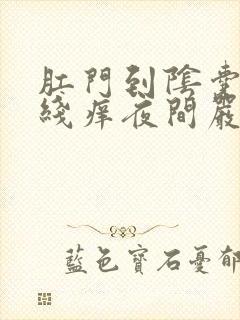 肛門到陰囊
綫癢夜間嚴
藍色寶石憂郁